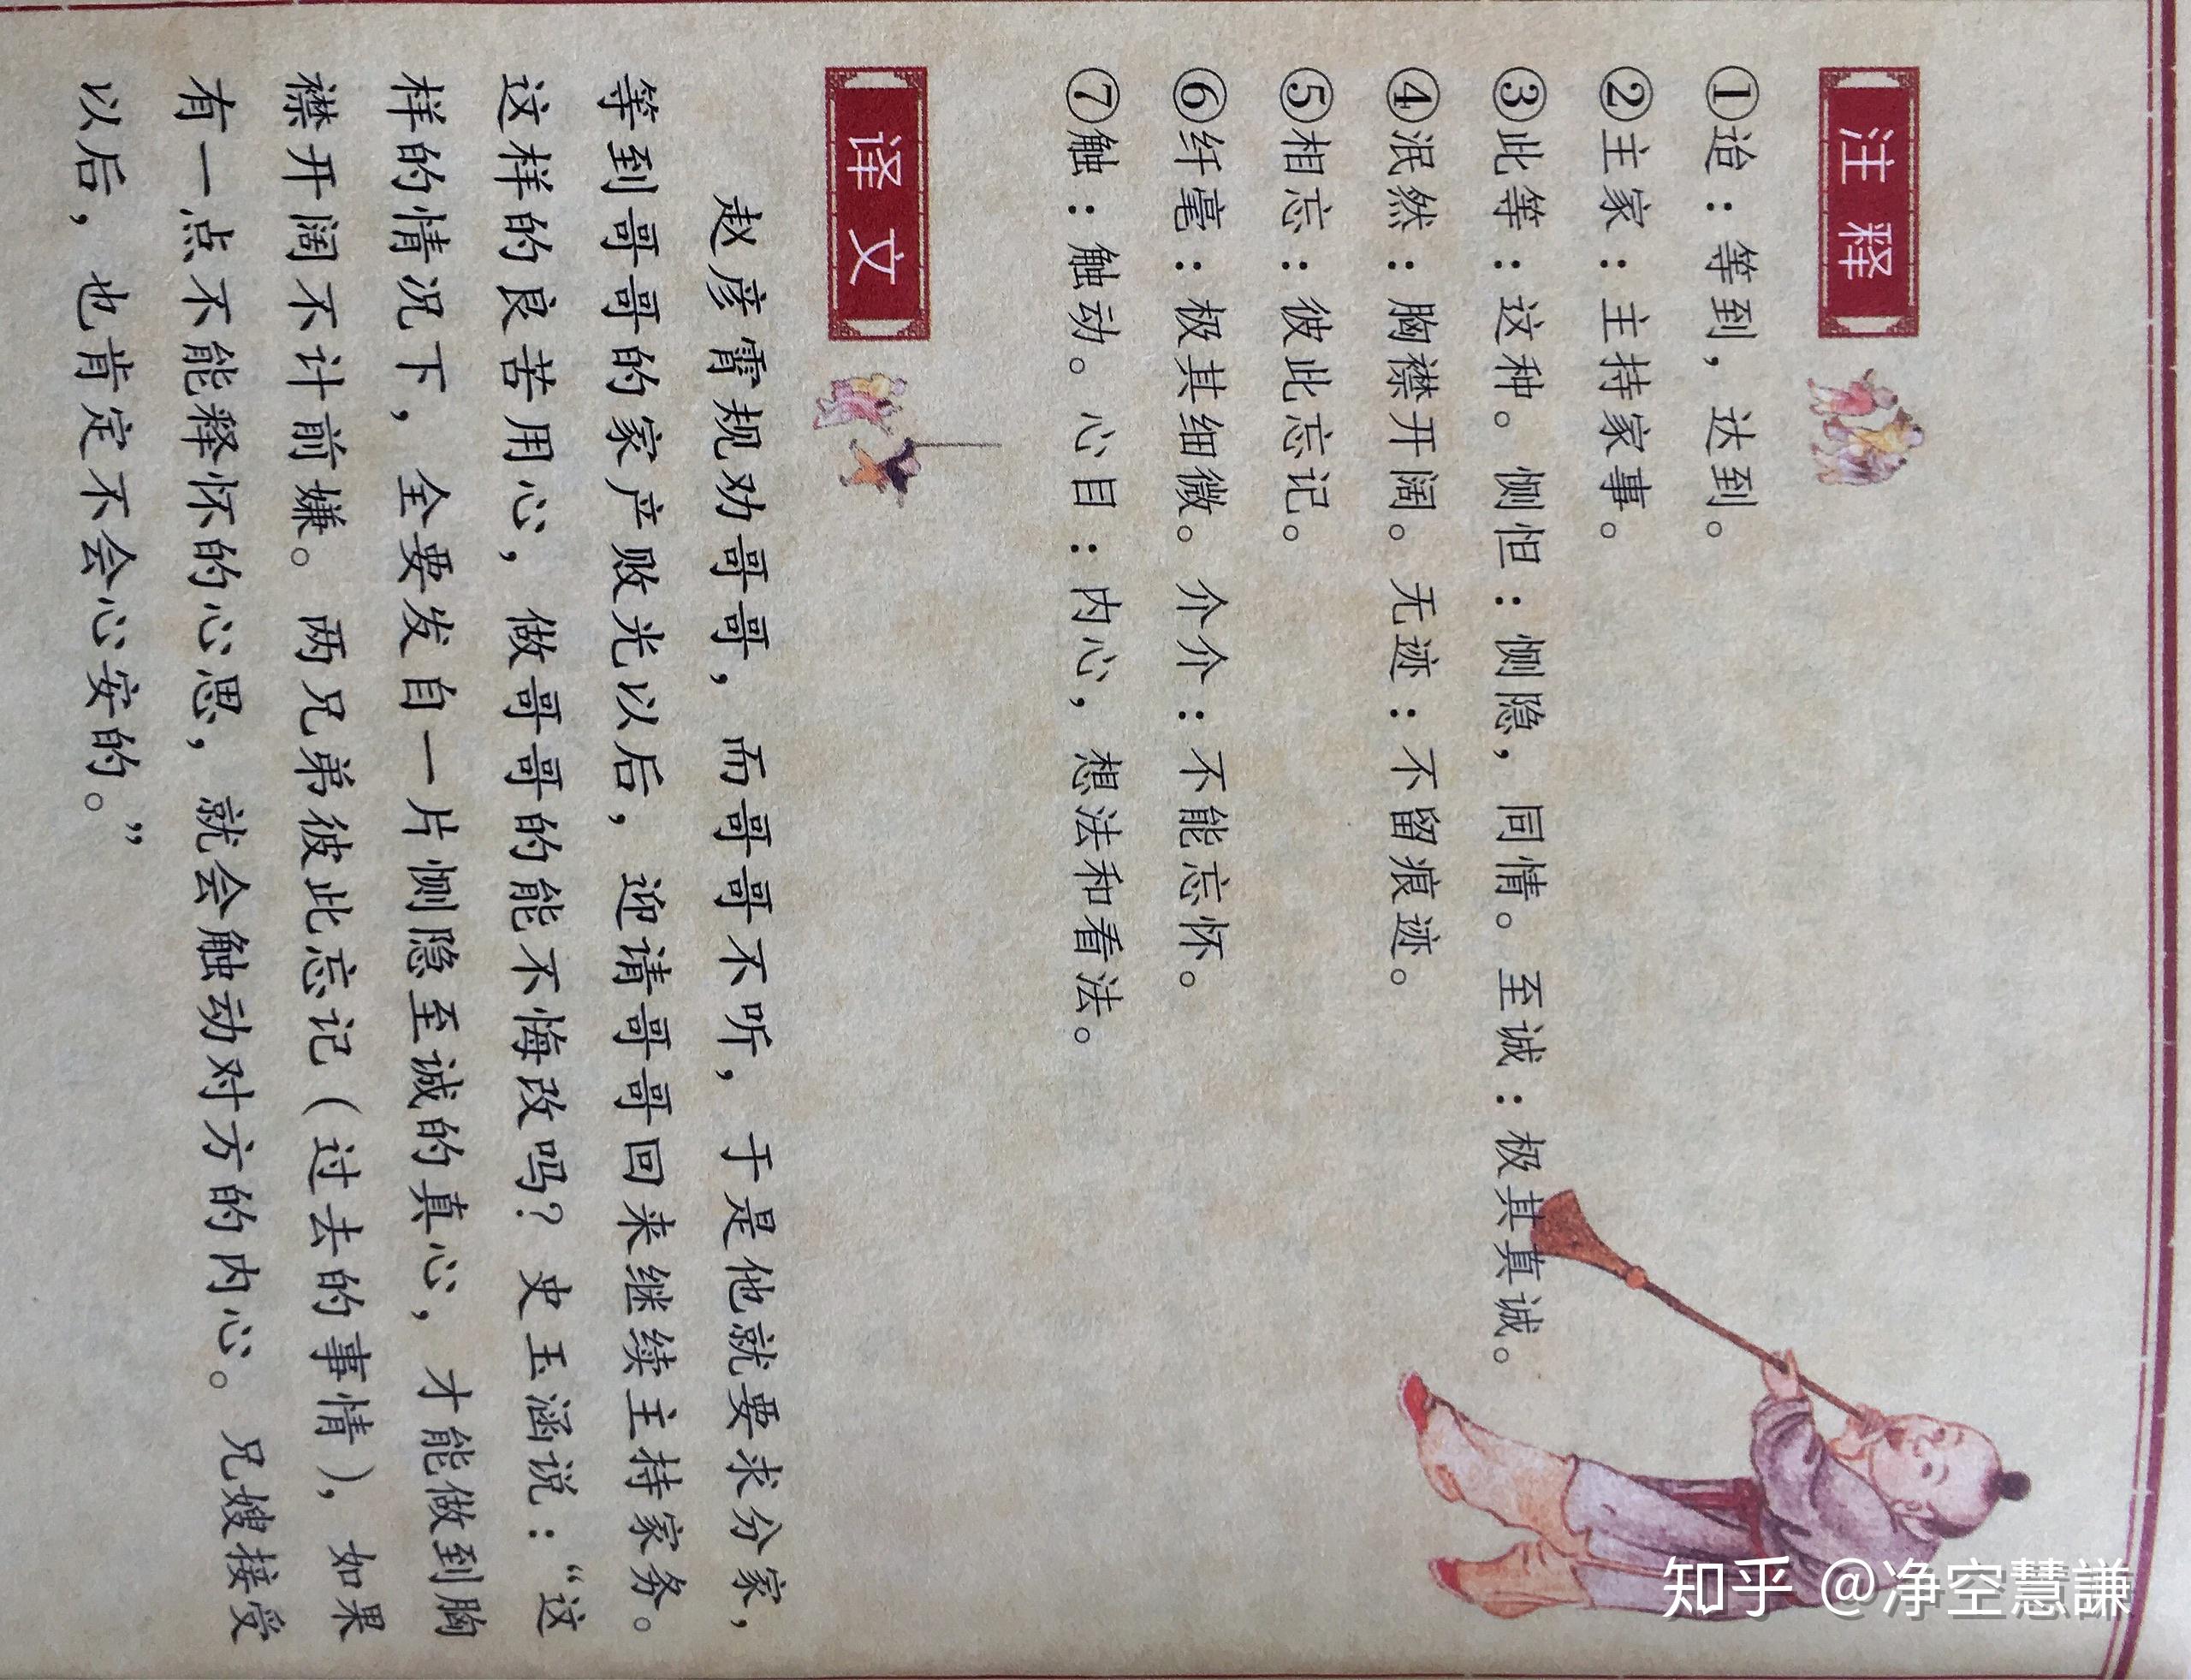 注释
①迨：等到，达到。
②主家：主持家事。
③此等：这种。恻怛：恻隐，同情。至诚：极其真诚。
④泯然：胸襟开阔。无迹：不留痕迹。
⑤相忘：彼此忘记。
⑥纤毫：极其细微。介介：不能忘怀。
⑦触：触动。心目：内心，想法和看法。
译文
赵彦霄规劝哥哥，而哥哥不听，于是他就要求分家，
等到哥哥的家产败光以后，迎请哥哥回来继续主持家务。
这样的良苦用心，做哥哥的能不悔改吗？史玉涵说：“这
样的情况下，全要发自一片恻隐至诚的真心，才能做到胸
襟开阔不计前嫌。两兄弟彼此忘记（过去的事情），如果
有一点不能释怀的心思，就会触动对方的内心。兄嫂接受
以后，也肯定不会心安的。”
知乎 @净空慧謙